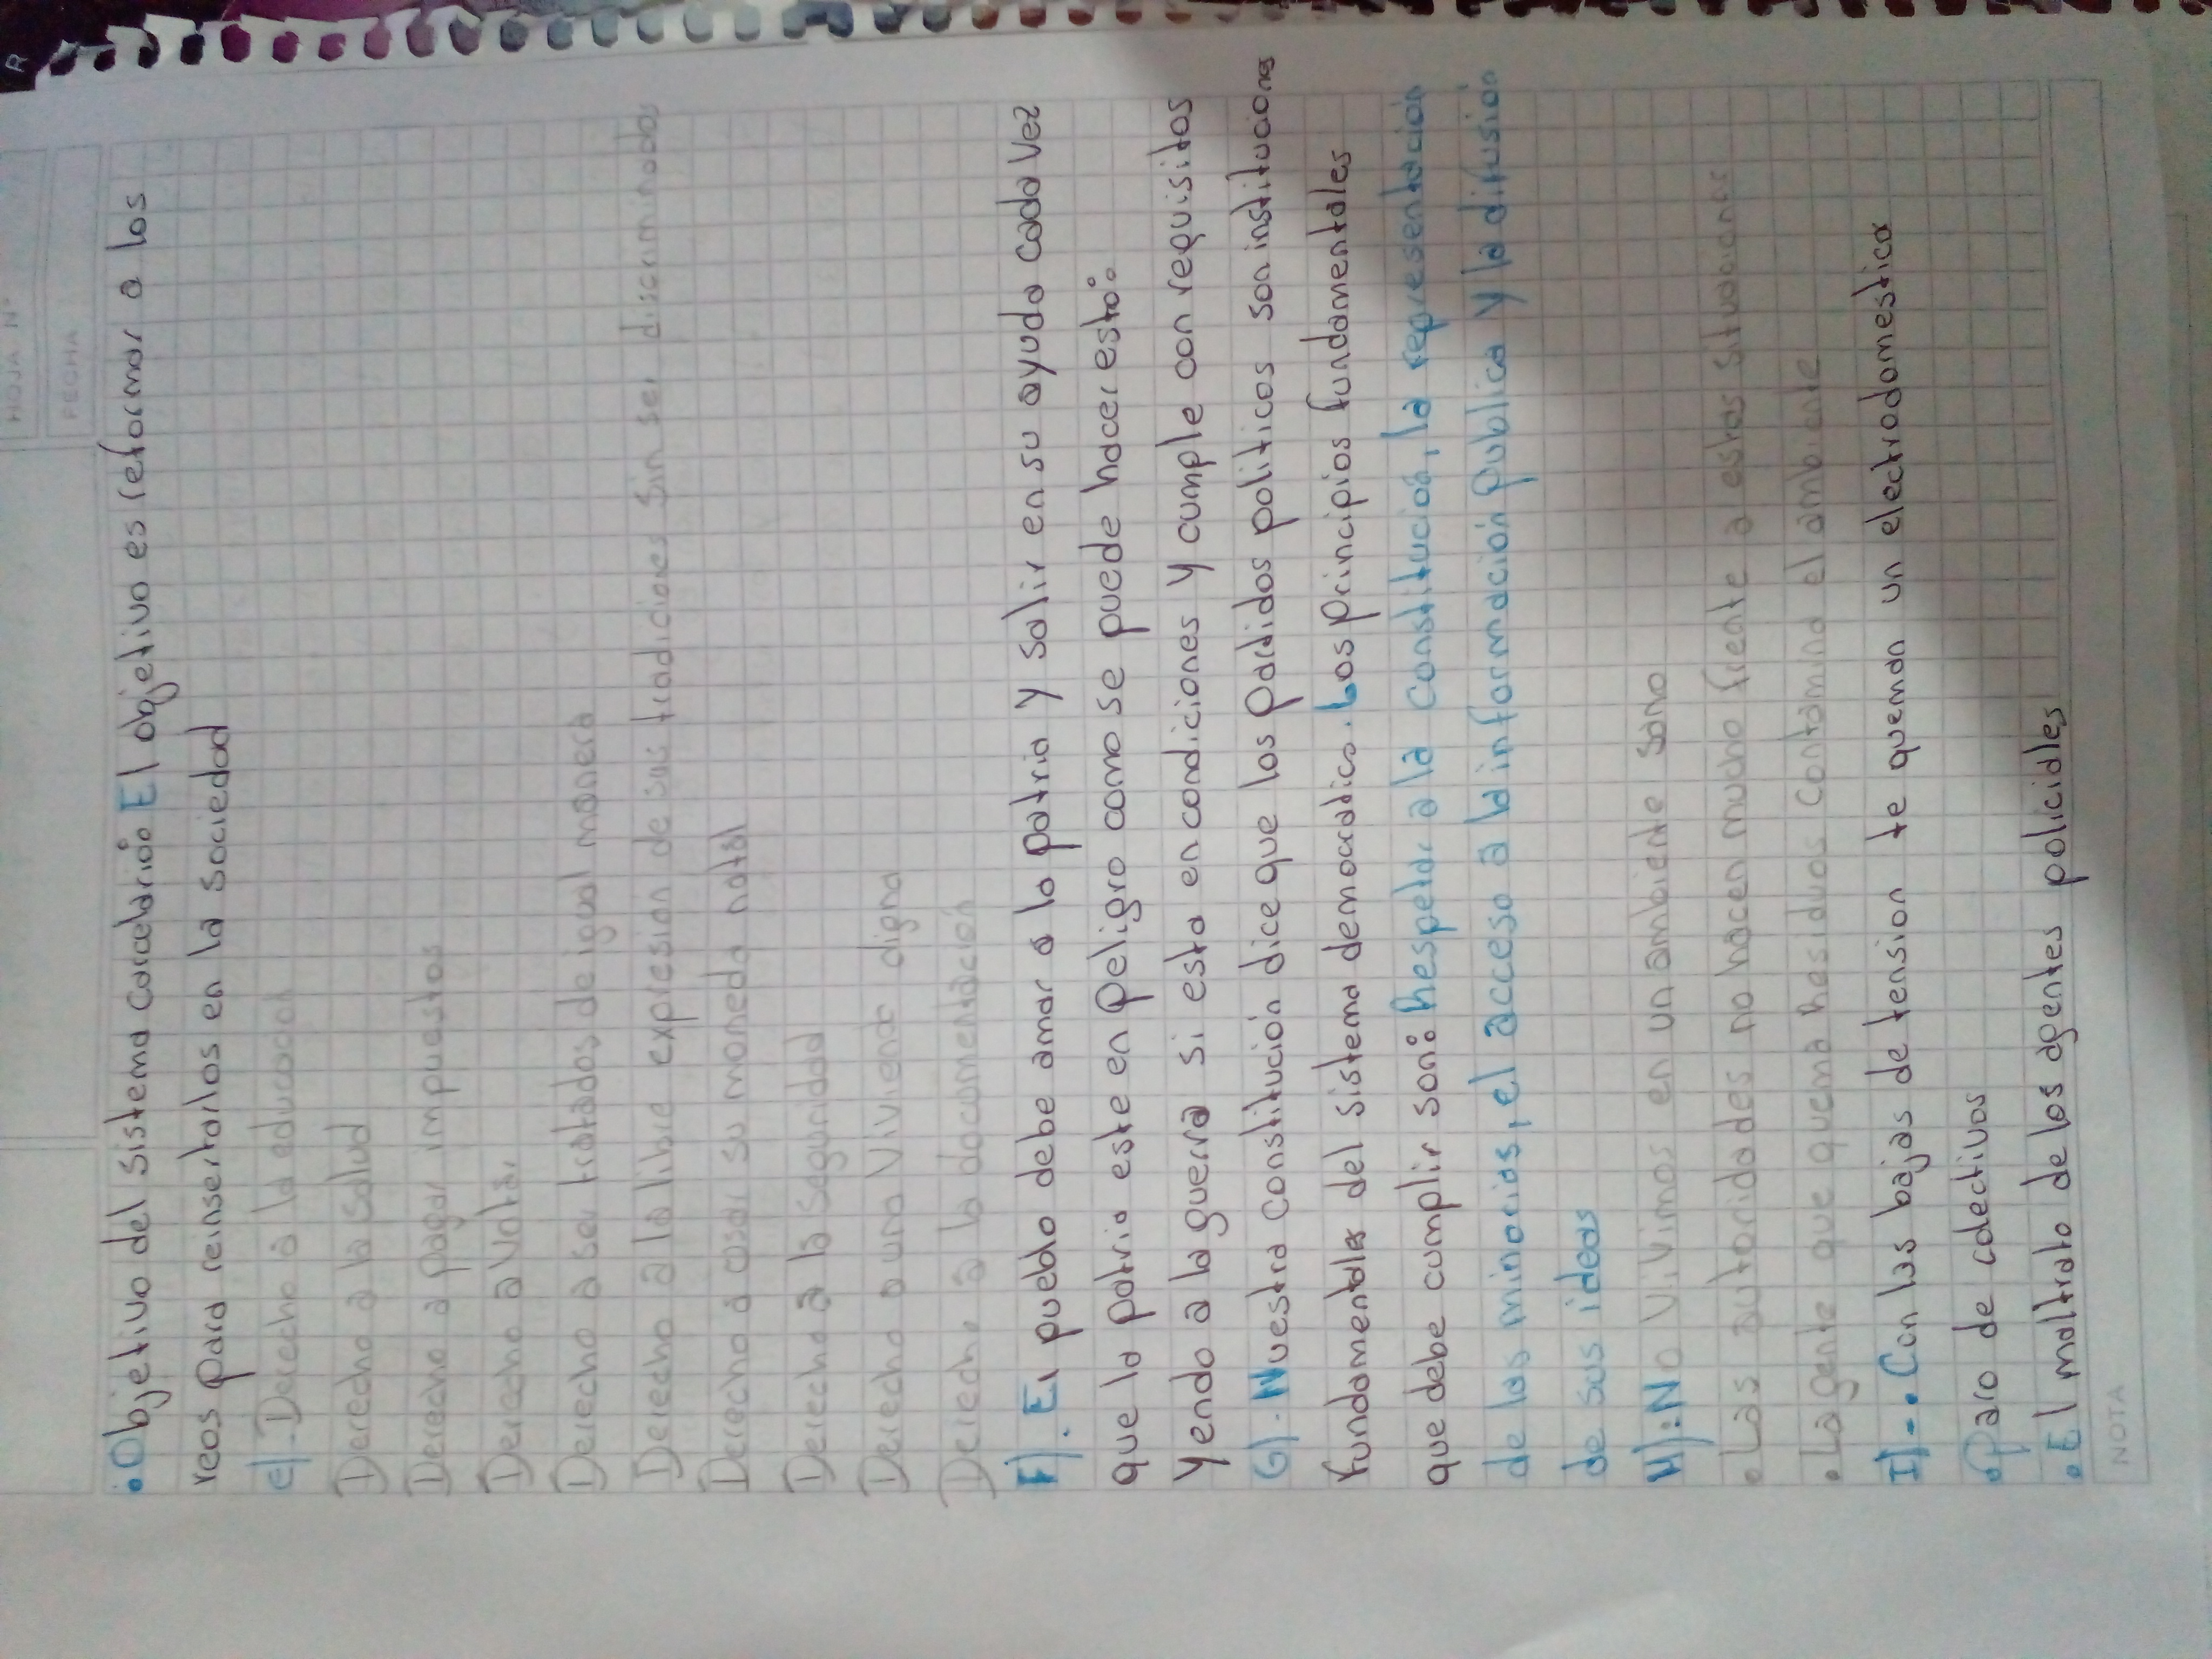 HOJA N°
FECHA
• Objetivo del sistema carcelario: El objetivo es reformar a los
reos para reinsertarlos en la sociedad
e). Derecho a la educacion
Derecho a la salud
Derecho a pagar impuestos
Derecho a votar
Derecho a ser tratados de igual manera
Derecho a la libre expresion de sus tradiciones sin ser discriminados
Derecho a usar su moneda natal
Derecho a la seguridad
Derecho a una vivienda digna
Derecho a la documentación
F). El pueblo debe amar a la patria y salir en su ayuda cada vez
que la patria este en peligro como se puede hacer esto:
yendo a la guerra si esta en condiciones y cumple con requisitos
G). Nuestra constitución dice que los Partidos politicos son instituciones
fundamentales del sistema democratico. Los principios fundamentales
que debe cumplir son: hespetar a la constitución, la representación
de las minorias, el acceso a la información publica y la difusión
de sus ideas
H): No vivimos en un ambiente sano
• Las autoridades no hacen mucho frente a estas situaciones
• La gente que quema hesiduos contamina el ambiente
I)-• Con las bajas de tension te queman un electrodomestico
• Paro de colectivos
• El maltrato de los agentes policiales
NOTA